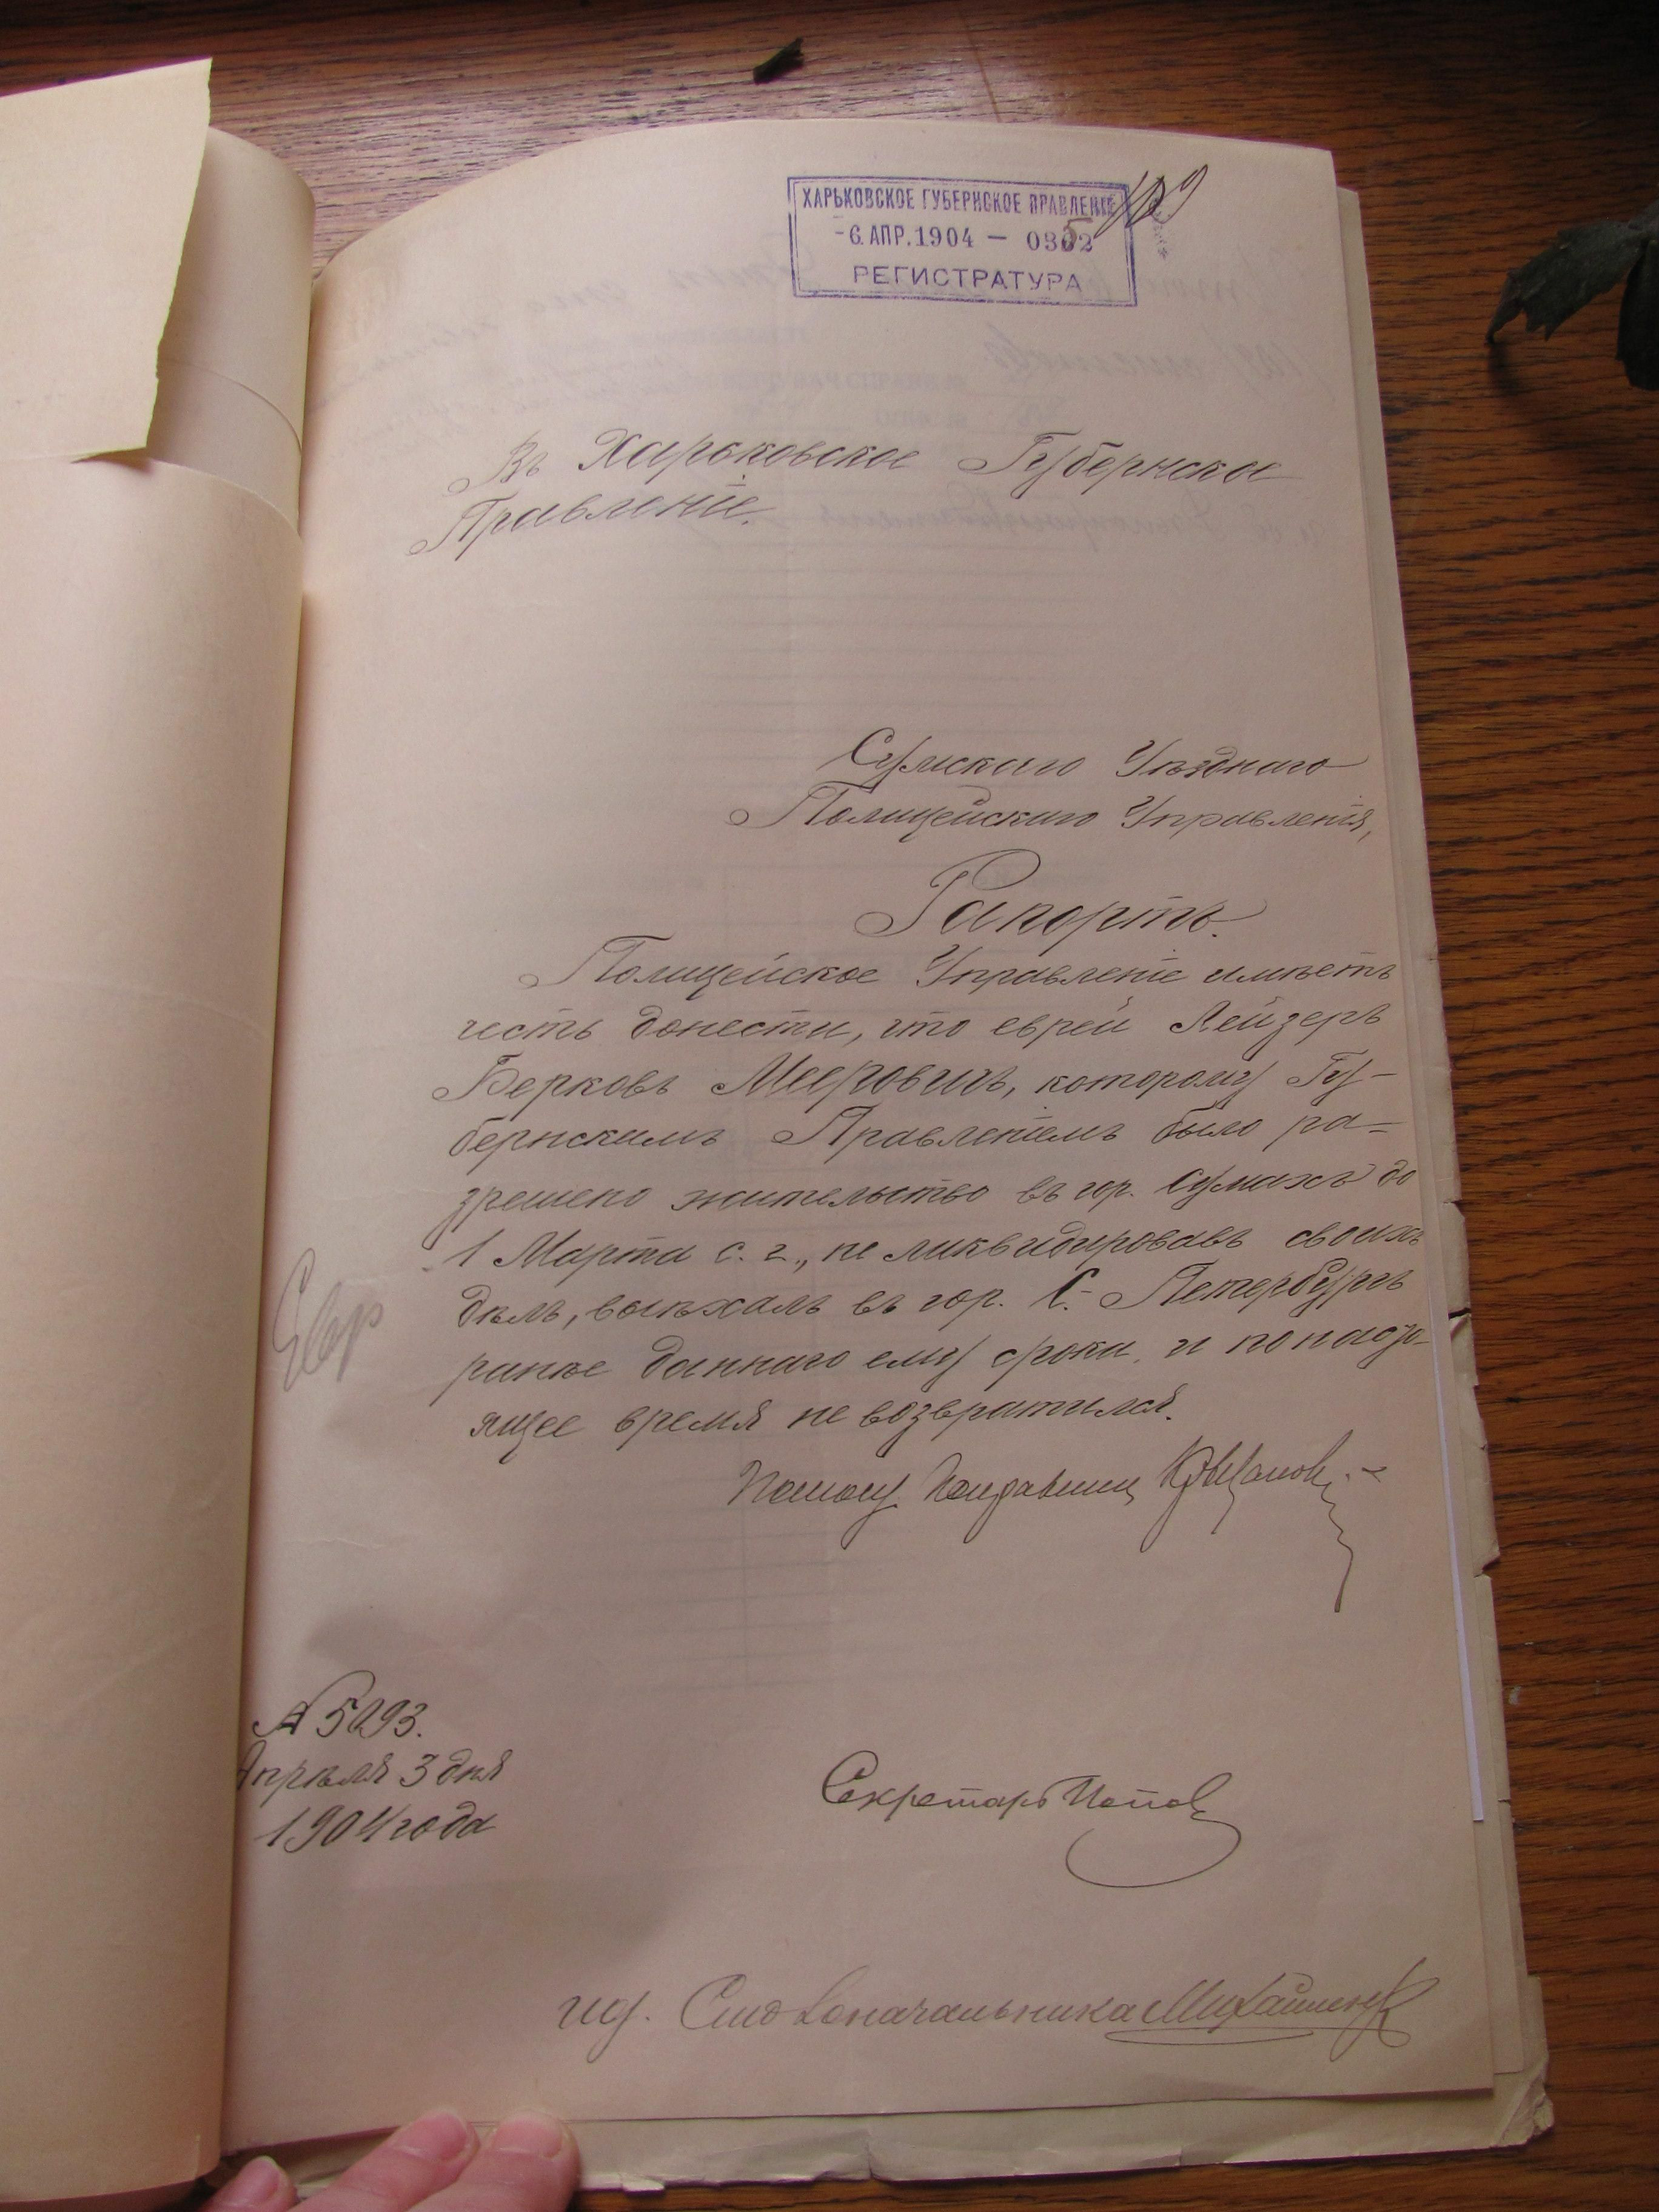 ХАРЬКОВСКОЕ ГУБЕРНСКОЕ ПРАВЛЕНІЕ
-6. АПР. 1904 —
РЕГИСТРАТУРА
Въ Харьковское Губернское
Правленіе.
Сумскаго Уѣзднаго
Полицейскаго Управленія,
Рапортъ.
Полицейское Управленіе имѣетъ
честь донести, что еврей Лейзеръ
Берковъ Мееровичъ, которому Гу-
бернскимъ Правленіемъ было ра-
зрешено жительство въ гор. Сумахъ до
1 Марта с. г., не ликвидировавъ своихъ
дѣлъ, выѣхалъ въ гор. С.-Петербургъ
ранѣе даннаго ему срока и по насто-
ящее время не возвратился.
Помощ. Исправника
Евр
№ 5093.
Апрѣля 3 дня
1904 года
Секретарь Попов
ид. Столоначальника